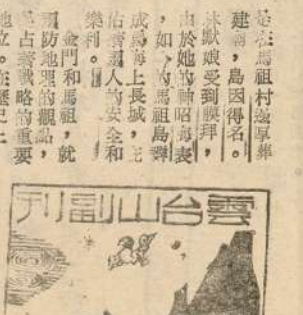 是在馬祖村邊厚葬
建廟，島因得名。
林默娘受到膜拜，
由於她的神昭海表
，如今的馬祖島群
成為海上長城，
佑著國人的安全和
樂利。
金門和馬祖，就
國防地理的觀點，
占著戰略的重要
地位。在歷史上
雲台山副刊